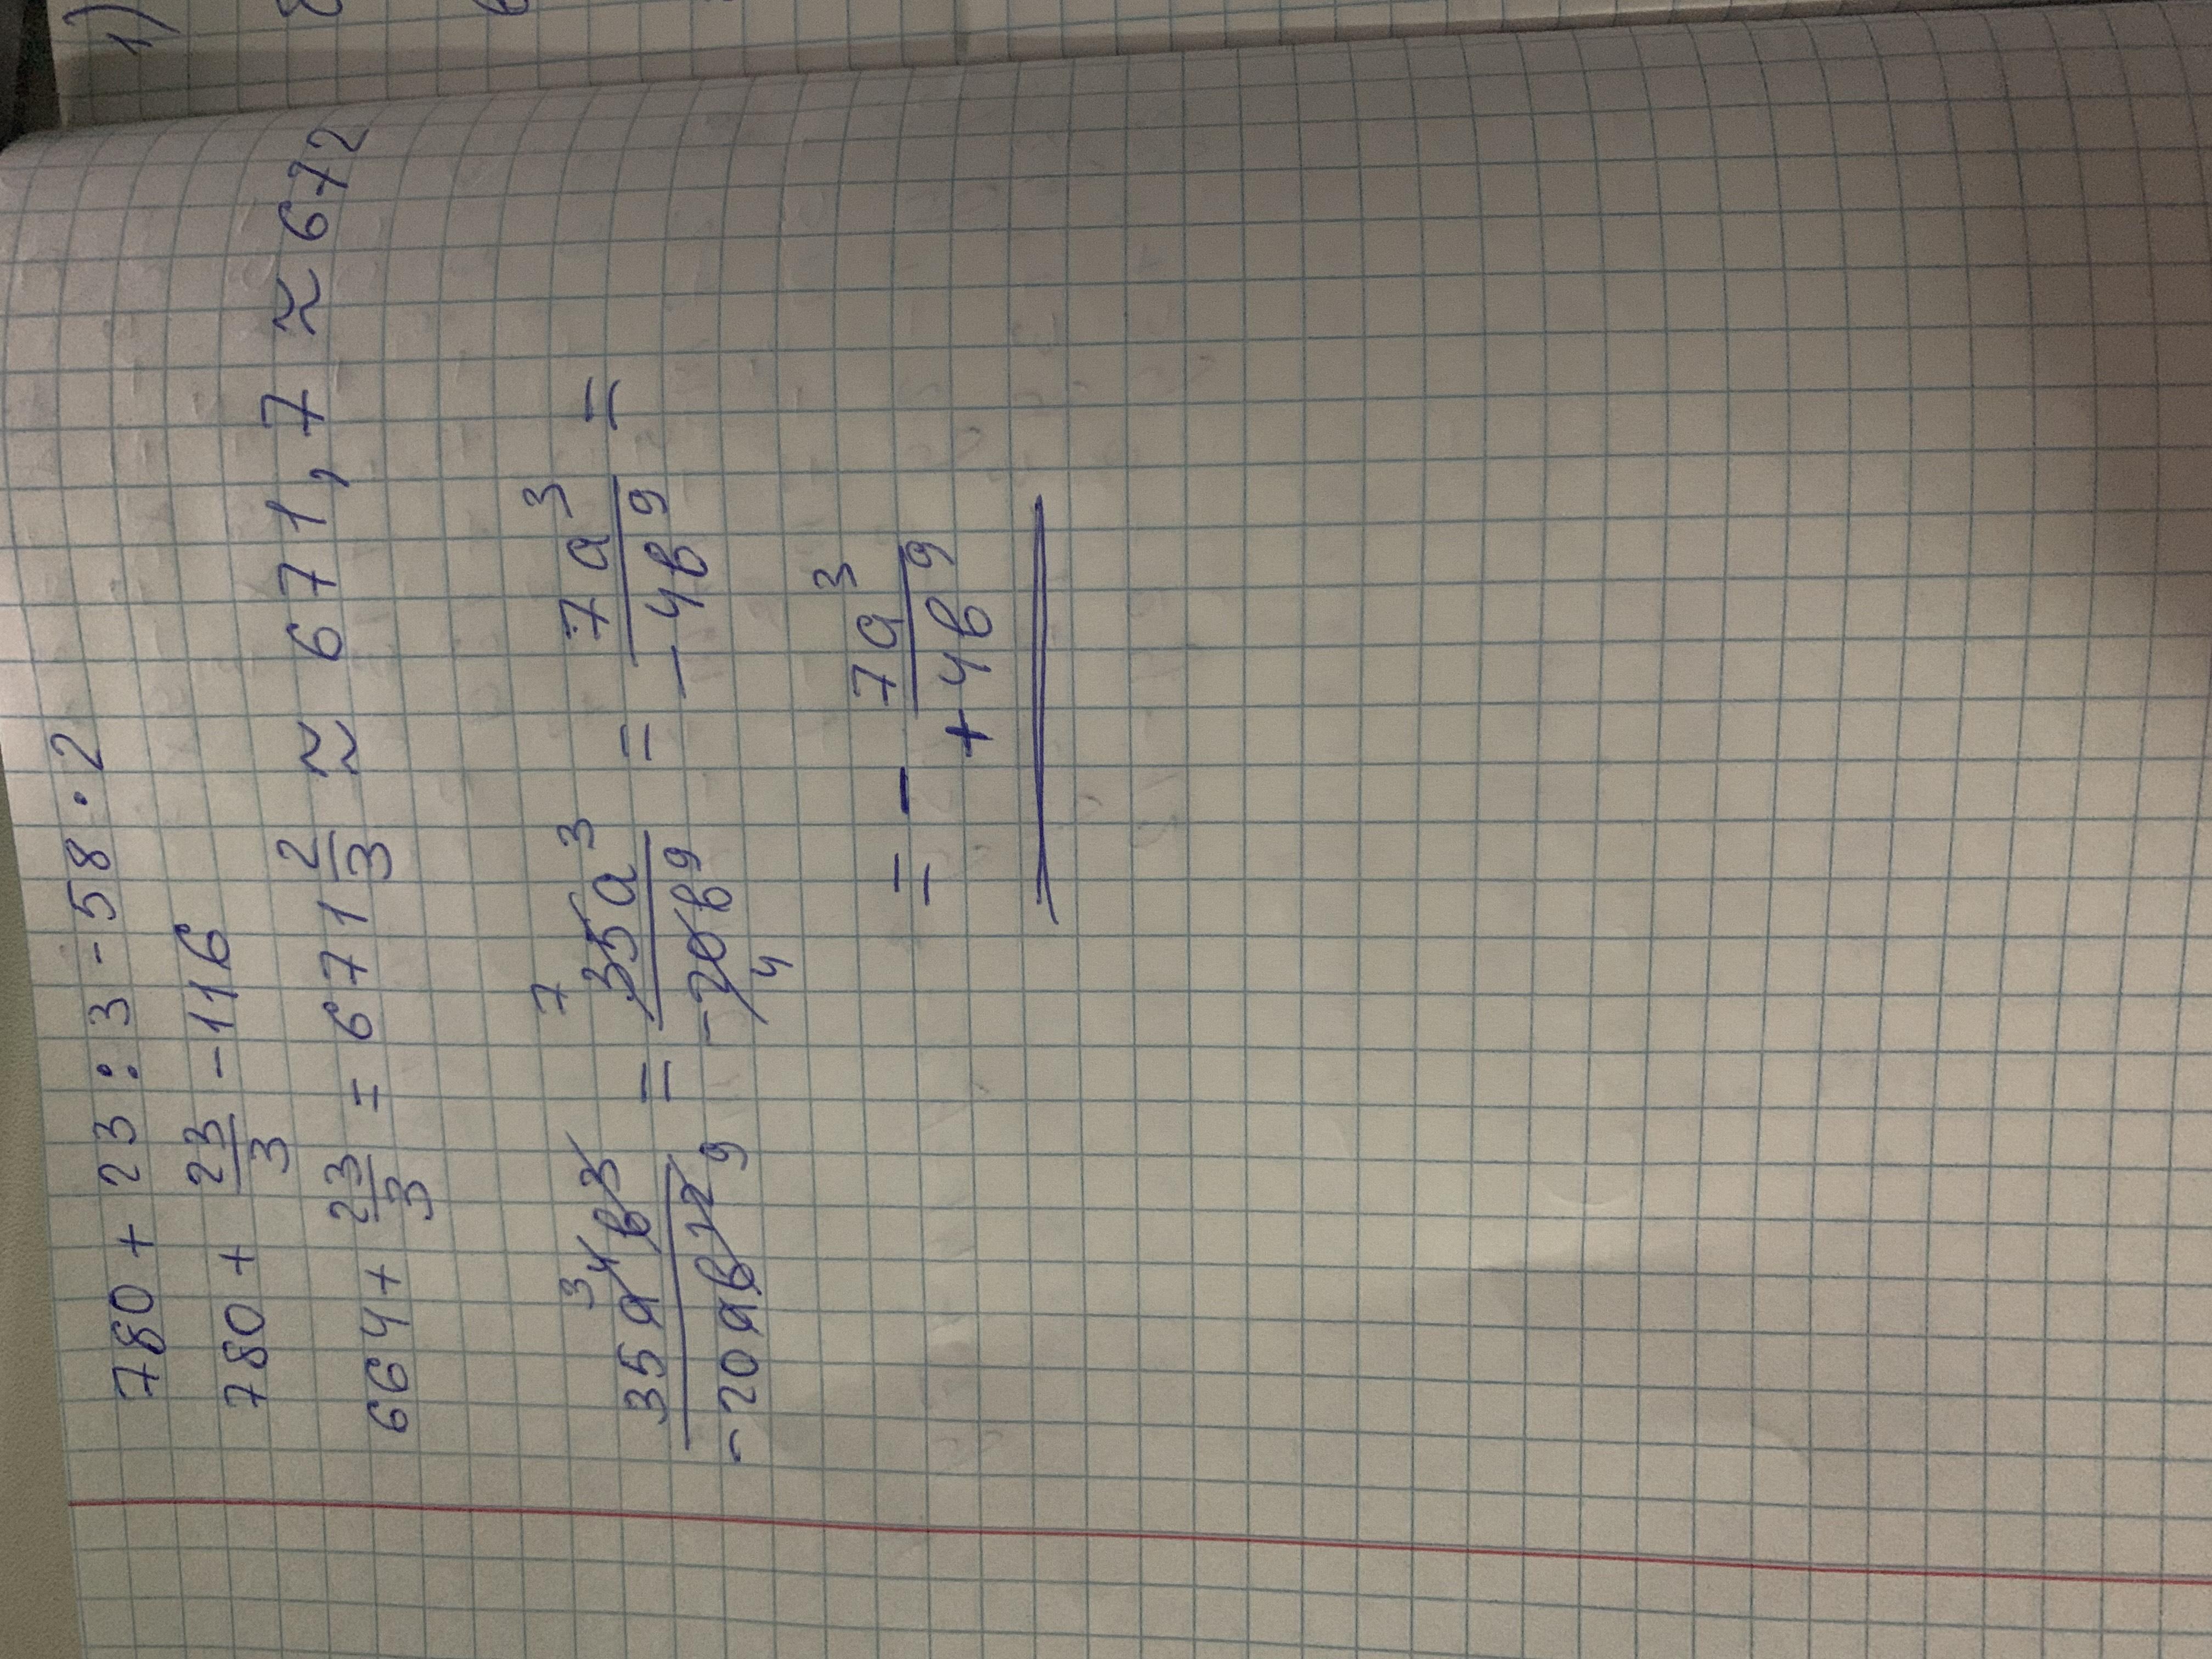 1)
780 + 23 : 3 - 58 · 2
780 + 23/3 - 116
664 + 23/3 = 671 2/3 ≈ 671,7 ≈ 672
35a⁴³в³/-20aв¹²⁹ = 35⁷a³/-20₄в⁹ = 7a³/-4в⁹ =
= - 7a³/+4в⁹